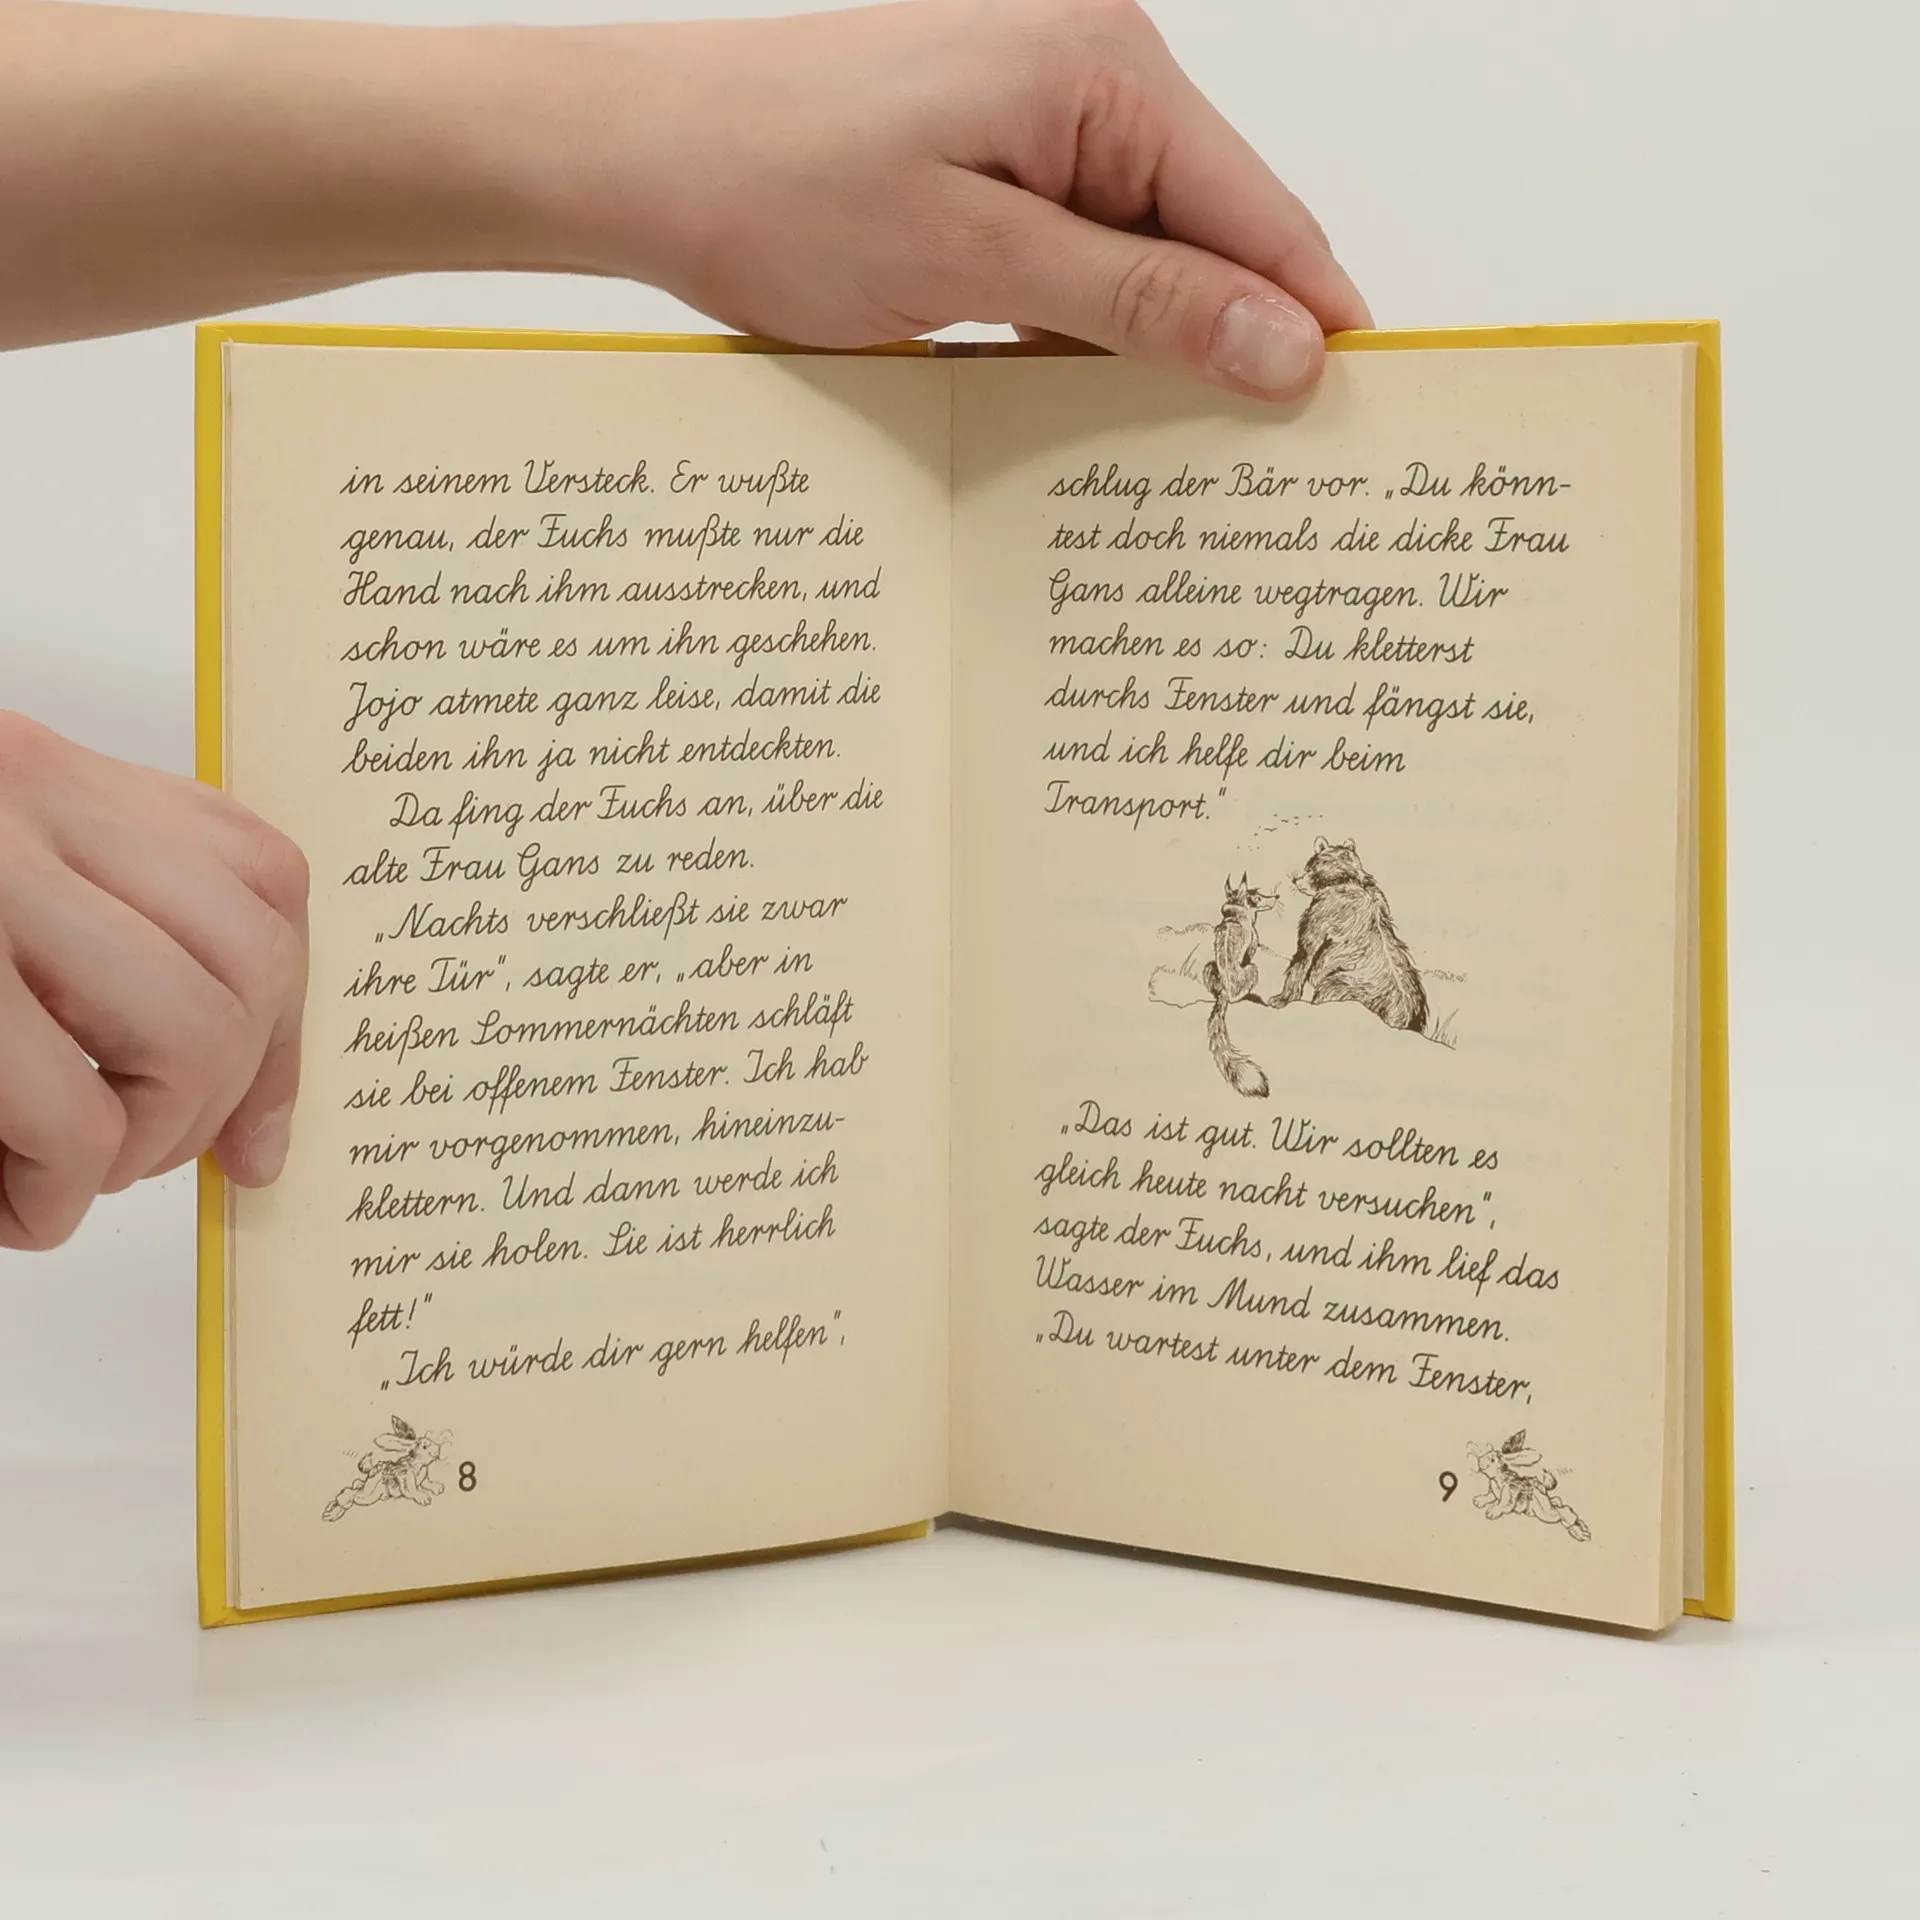 in seinem Versteck. Er wußte
genau, der Fuchs mußte nur die
Hand nach ihm ausstrecken, und
schon wäre es um ihn geschehen.
Jojo atmete ganz leise, damit die
beiden ihn ja nicht entdeckten.
Da fing der Fuchs an, über die
alte Frau Gans zu reden.
„Nachts verschließt sie zwar
ihre Tür", sagte er, „aber in
heißen Sommernächten schläft
sie bei offenem Fenster. Ich hab
mir vorgenommen, hineinzu-
klettern. Und dann werde ich
mir sie holen. Sie ist herrlich
fett!"
„Ich würde dir gern helfen",
8
schlug der Bär vor. „Du könn-
test doch niemals die dicke Frau
Gans alleine wegtragen. Wir
machen es so: Du kletterst
durchs Fenster und fängst sie,
und ich helfe dir beim
Transport."
„Das ist gut. Wir sollten es
gleich heute nacht versuchen",
sagte der Fuchs, und ihm lief das
Wasser im Mund zusammen.
„Du wartest unter dem Fenster,
9